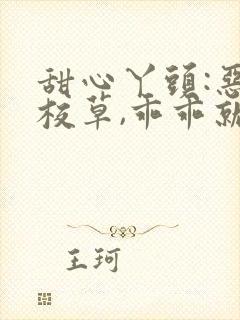 甜心丫頭:惡
校草,乖乖就
王珂